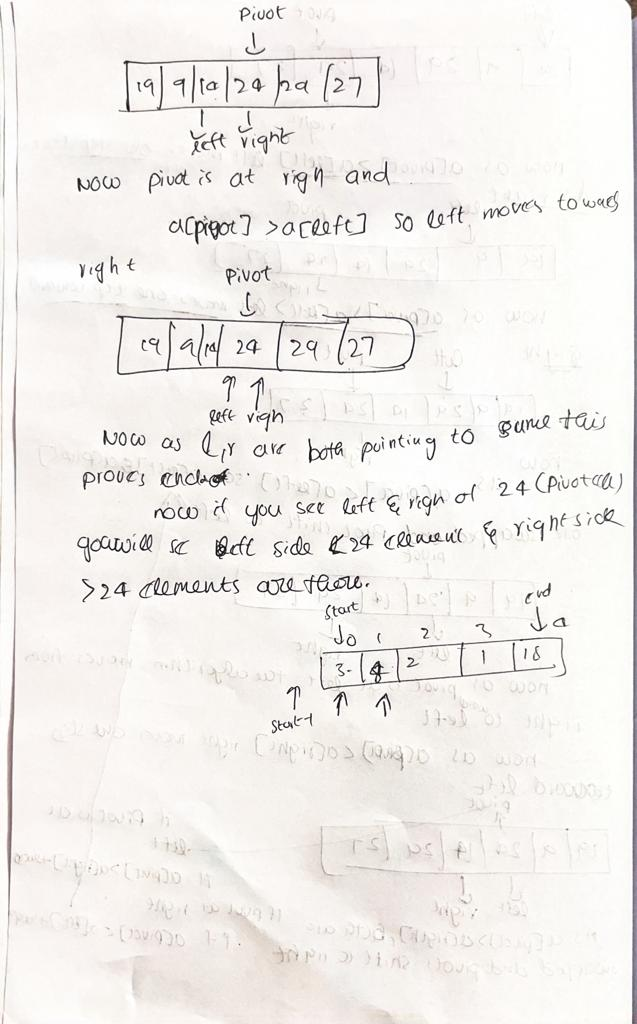 Pivot
19 | 9 | 14 | 24 | 29 | 27
left right
Now pivot is at righ and
a[pivot] > a[left] so left moves towads
right
Pivot
19 | 9 | 14 | 24 | 29 | 27
left righ
Now as l,r are both pointing to same this
proves
now if you see left & righ of 24 (Pivot
left side < 24 element & right side
> 24 elements are there.
start end
0 1 2 3
3 2 1 18
start-1